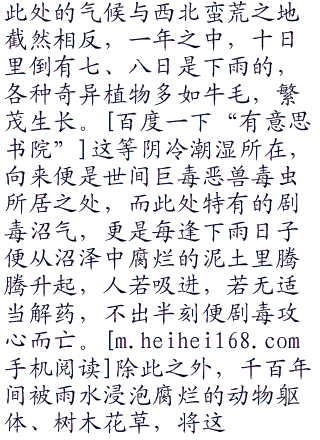 此处的气候与西北蛮荒之地
截然相反，一年之中，十日
里倒有七、八日是下雨的，
各种奇异植物多如牛毛，繁
茂生长。[百度一下“有意思
书院”]这等阴冷潮湿所在，
向来便是世间巨毒恶兽毒虫
所居之处，而此处特有的剧
毒沼气，更是每逢下雨日子
便从沼泽中腐烂的泥土里腾
腾升起，人若吸进，若无适
当解药，不出半刻便剧毒攻
心而亡。[m.heihei168.com
手机阅读]除此之外，千百年
间被雨水浸泡腐烂的动物躯
体、树木花草，将这